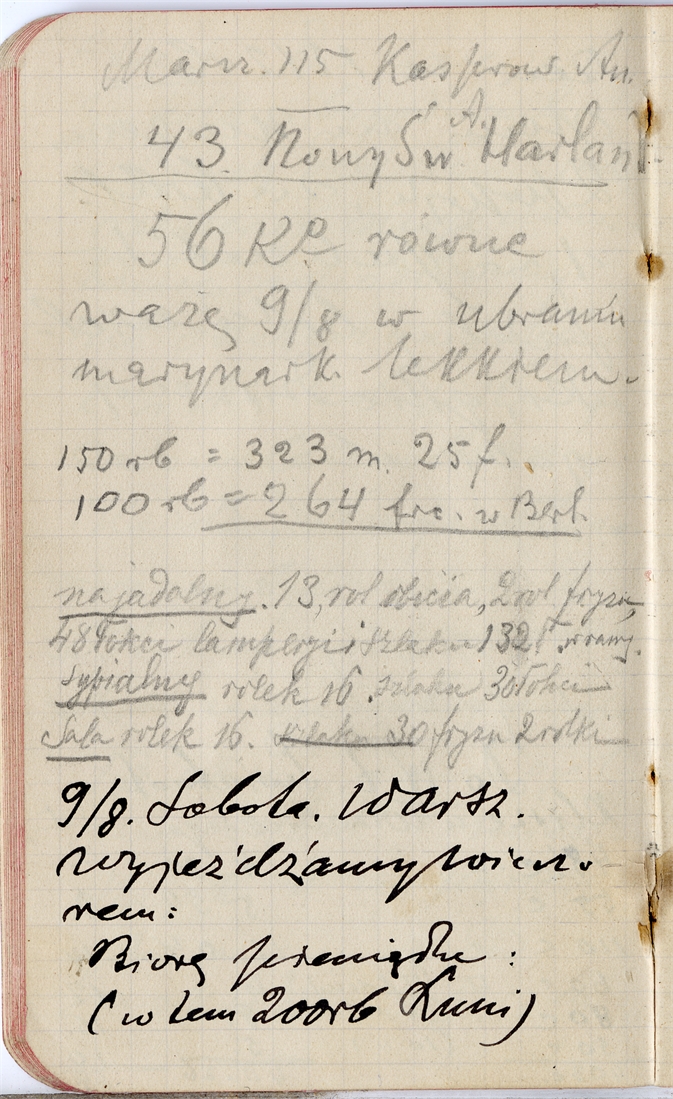 Marsz. 115 Kasprow. An.
A.
43. Nowy Św Harland
56 Ko równe
ważę 9/8 w ubraniu
marynark. lekkiem.
150 rb = 323 m. 25 f.
100 rb = 264 frc. w Berl.
na jadalny. 13, rol obicia, 2 rol fryzu,
48 łokci lamperyi i szlaku 132 ł. w ramy.
Sypialny rolek 16. szlaku 30 łokci
Sala rolek 16. szlaku 30 fryzu 2 rolki
9/8. Sobota. Warsz.
wyjeżdżamy wieczo-
rem:
Biorę pieniądze :
(w tem 200 rb Luni)